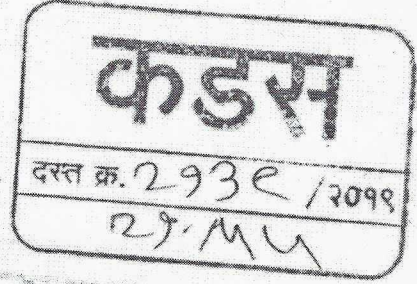 कडस
दस्त क्र. २१३९ /२०१९
२१-५५